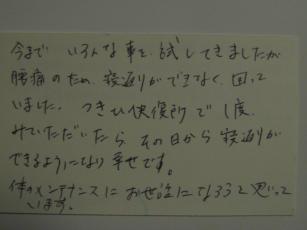 今まで いろんな事を試してきましたが
腰痛のため、寝返りができなく、困って
いました。 つきひ快復所で1度、
みていただいたら、その日から寝返りが
できるようになり幸せです。
体のメンテナンスにお世話になろうと思って
います。